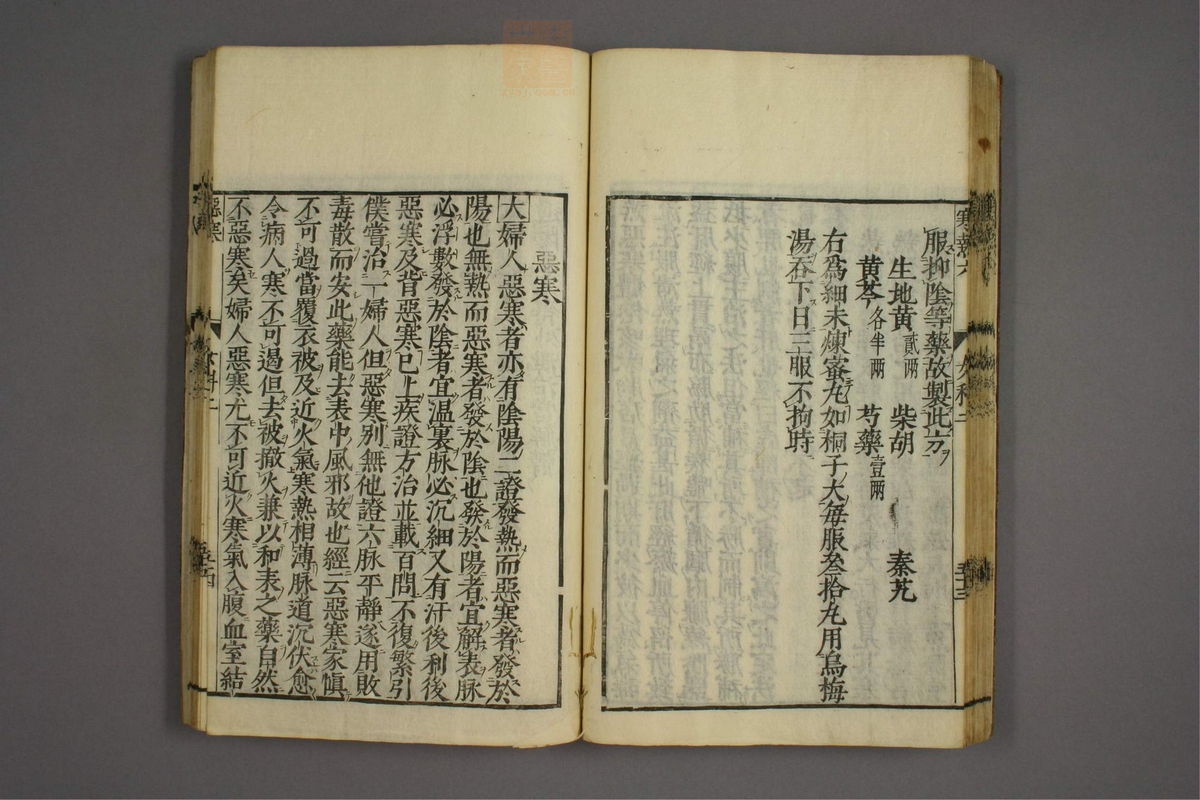 服抑陰等藥故製此方
生地黄貳兩 柴胡 秦艽
黄芩各半兩 芍藥壹兩
右爲細末煉蜜丸如梧子大每服叁拾丸用烏梅
湯吞下日三服不拘時
惡寒
夫婦人惡寒者亦有陰陽二證發熱而惡寒者發於
陽也無熱而惡寒者發於陰也發於陽者宜解表脉
必浮數發於陰者宜温裏脉必沉細又有汗後利後
惡寒及背惡寒已上疾證方治並載百問不復繁引
僕嘗治一婦人但惡寒别無他證六脉平静遂用敗
毒散而安此藥能去表中風邪故也經云惡寒家愼
不可過當覆衣被及近火氣寒熱相薄脉道沉伏愈
令病人寒不可遏但去被撤火兼以和表之藥自然
不惡寒矣婦人惡寒尤不可近火寒氣入腹血室結